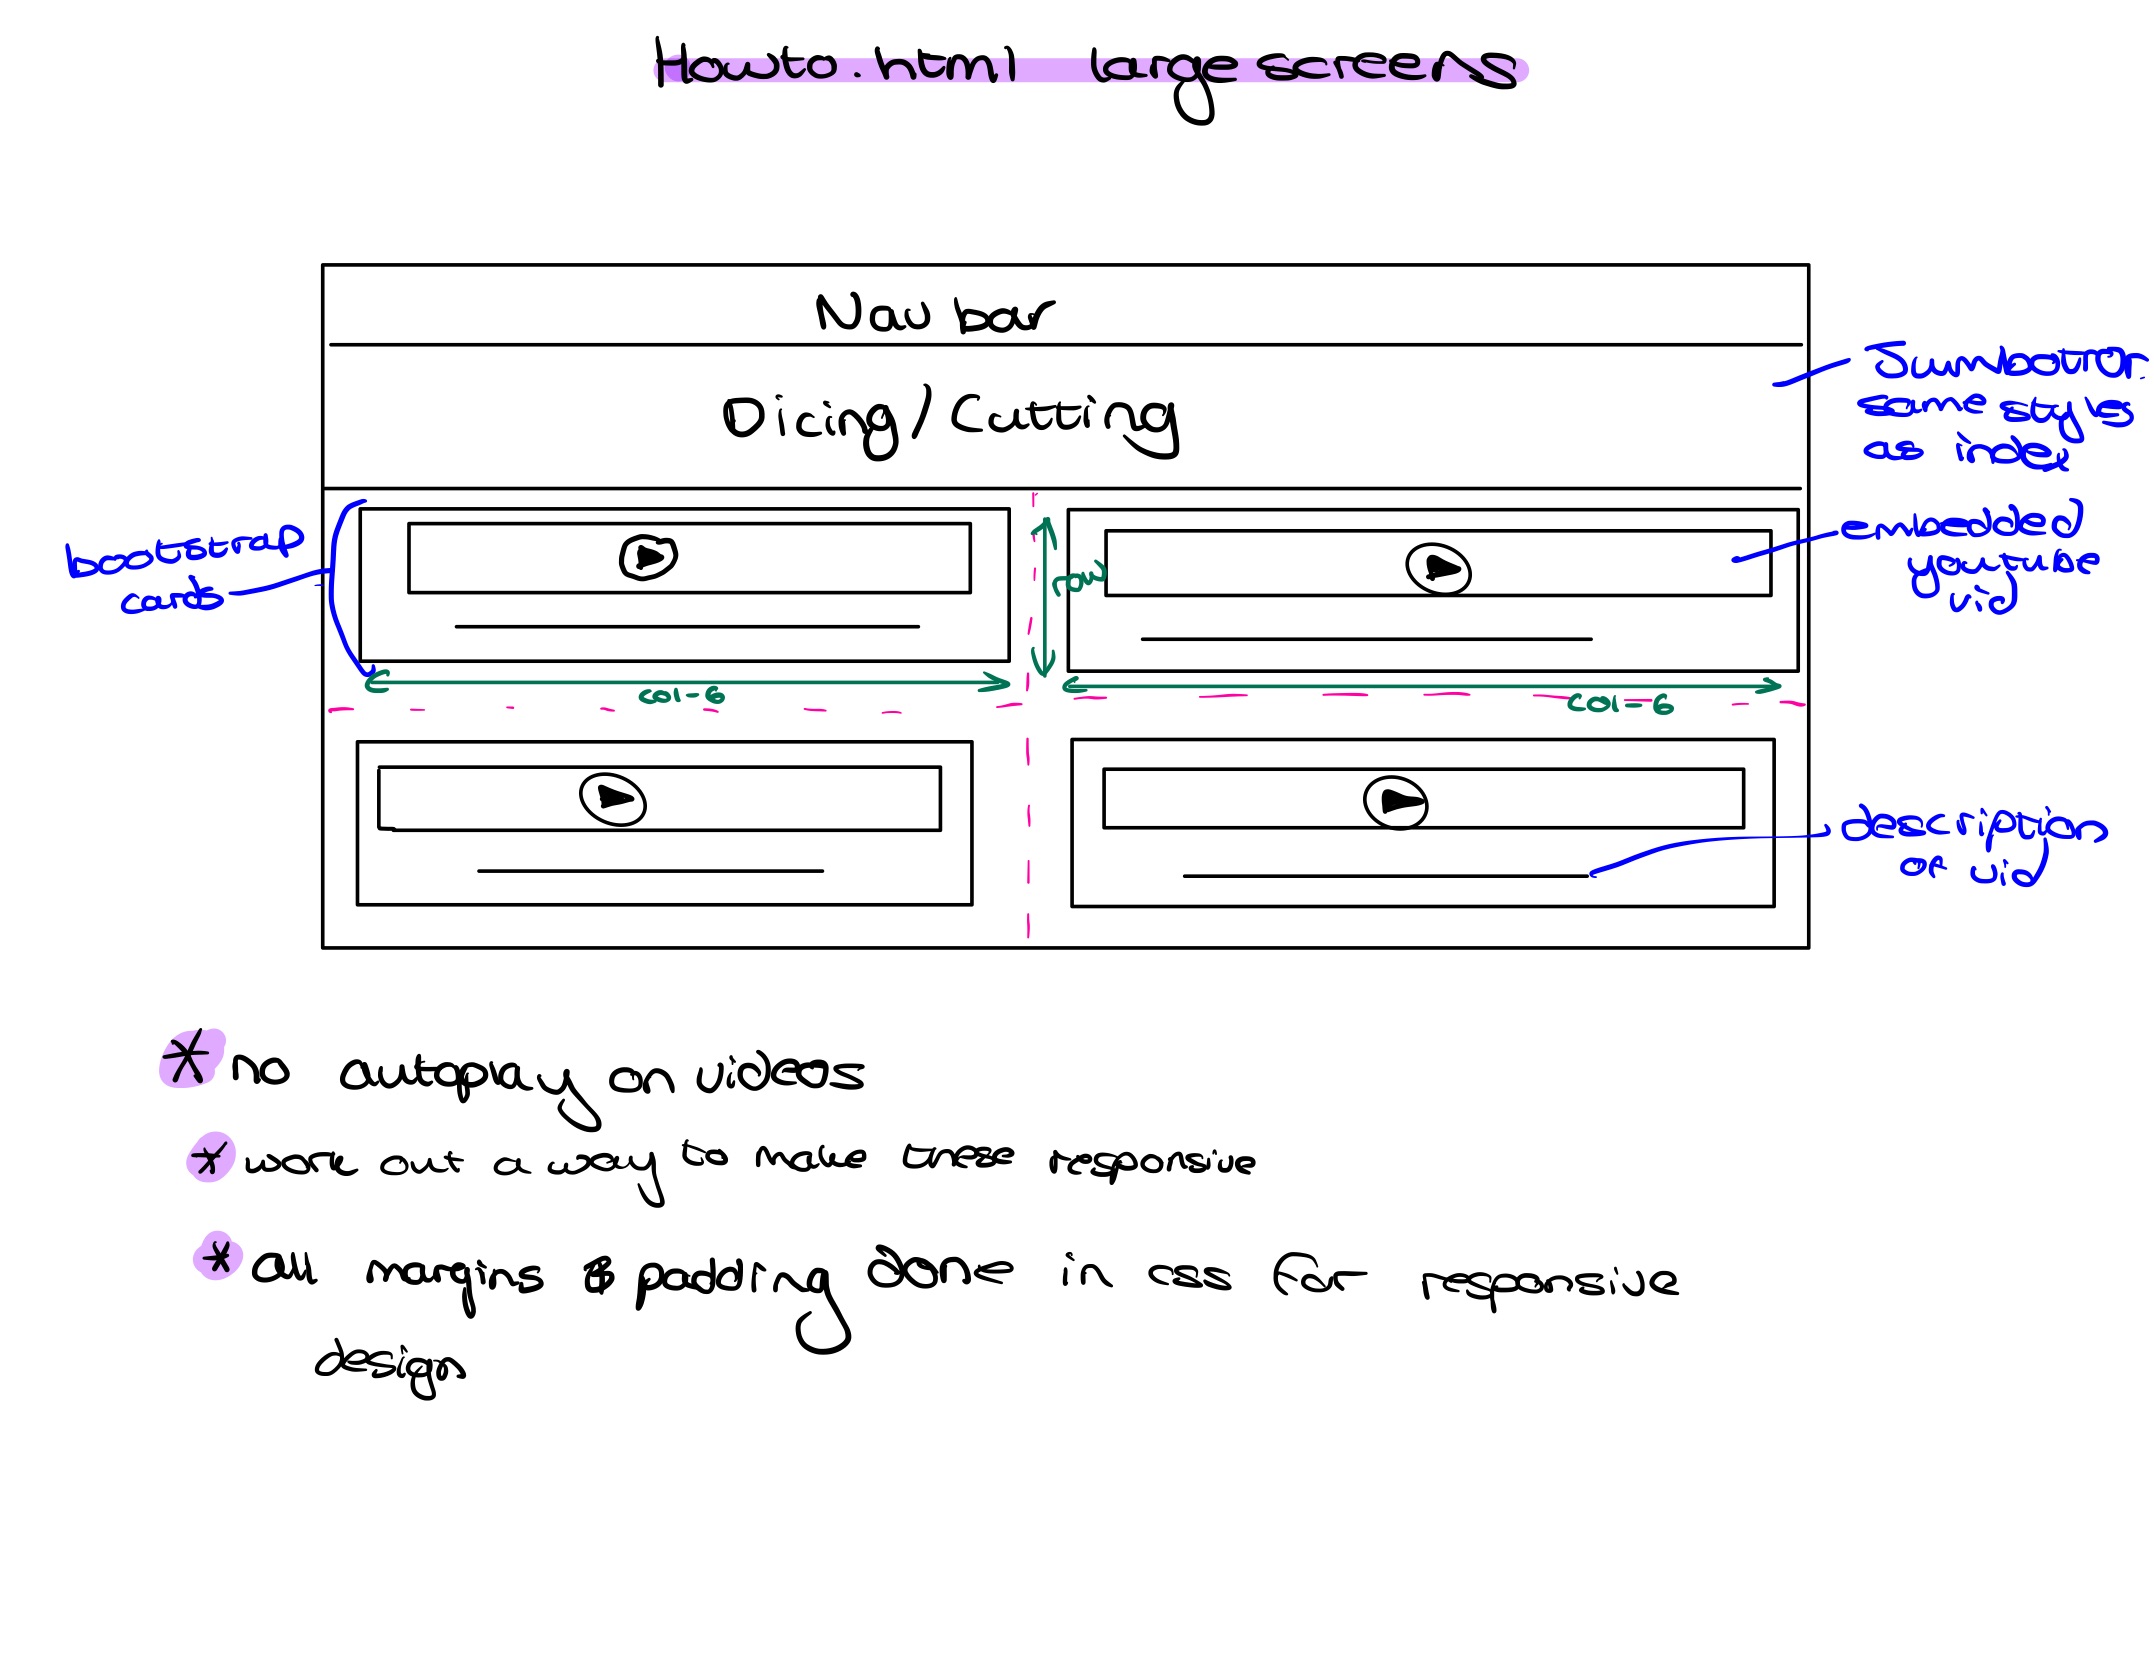 Howto.html large screens
Nav bar
Dicing/Cutting
Jumbotron
same styles
as index
bootstrap
cards
row
embedded
youtube
vid
col-6
col-6
description
of vid
* no autoplay on videos
* work out a way to make these responsive
* all margins & padding done in css for responsive
design